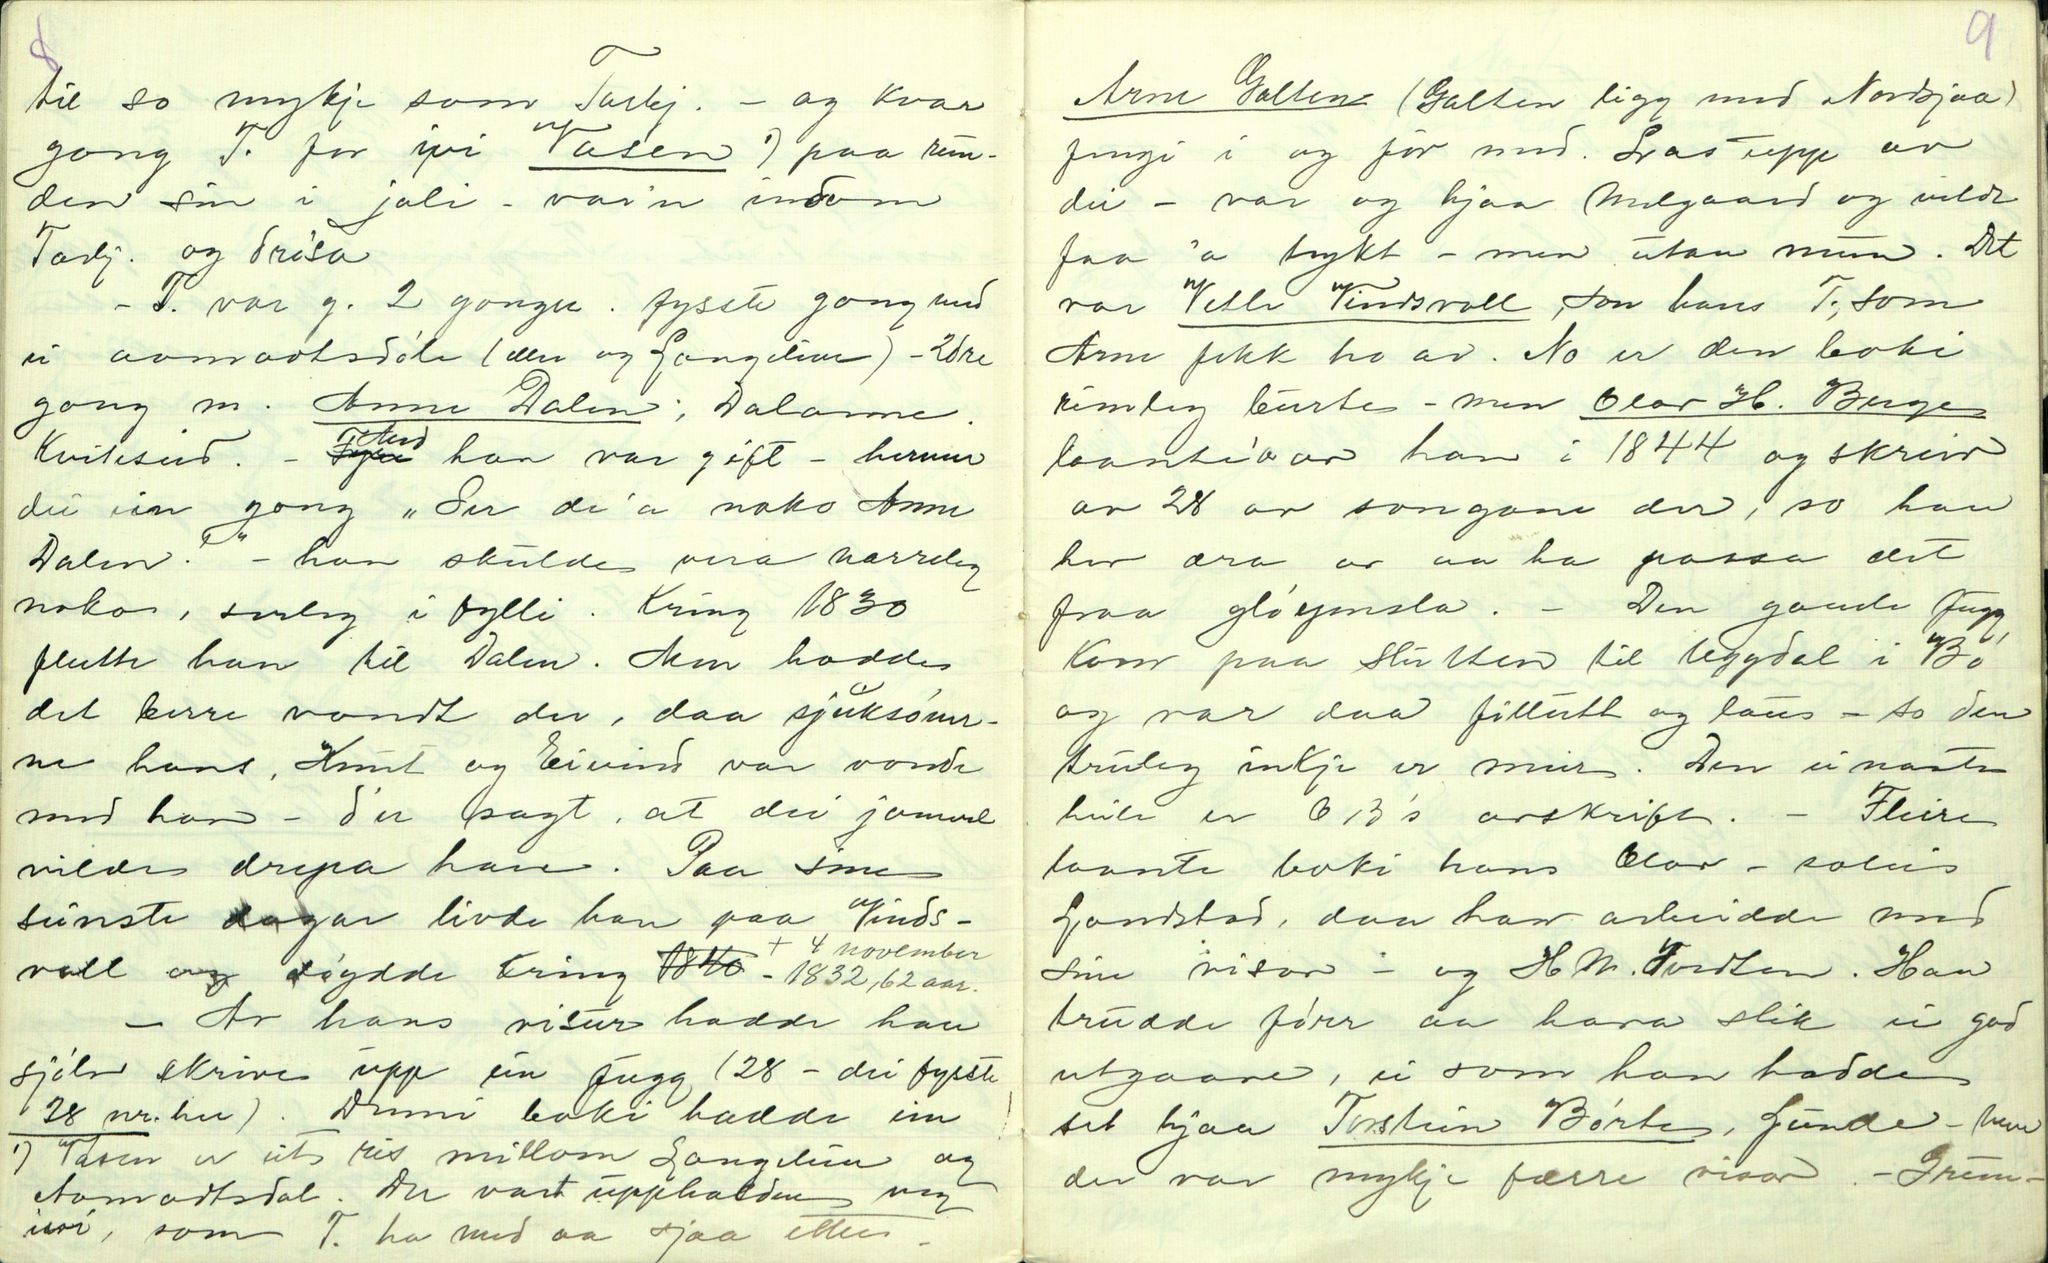 8
til so mykje som Tarkj. - og kvar
gong T. for ivi Vasen ¹) paa run-
den sin i juli - var'n indom
Tarkj. og drisa
- T. var g. 2 gonger. fysste gong med
ei aamodtsdöle (ller og Gongeline) - 2dre
gong m. Anne Dalen, Dalanne.
Kviteseid. - Med han var gift -
dei ein gong „Ser de 'a noko Anne
Dalen?" - han skulde vera narreleg
noko, serleg i fylli. Kring 1830
flutte han til Dalen. Men hadde
det berre vondt der, daa sjuksöner-
ne hans, Knut og Eivind var vonde
med han - d'er sagt, at dei jamvel
vilde drepa han. Paa sine
seinste dagar livde han paa Vinds-
voll og döydde kring 1840 - + 4 november
1832, 62 aar.
- Av hans visur hadde han
sjölv skrive upp ein fugg (28 - dei fysste
28 nr. her). Denni boki hadde ein
¹) Vasen er eit res millom Gongeline og
Aamodtsdal. Der vart upphalden veg
ivi, som T. ha med aa sjaa etter.
9
Arne Galten (Galten ligg med Nordsjaa)
fengi i og för med. Las upp av
di - var og hjaa Melgaard og vilde
faa 'a trykt - men utan mun. Det
var Vetle Vindsvoll, son hans T., som
Arne fekk ho av. No er den boki
rimeleg burte - men Olav H. Berge
laante 'a av han i 1844 og skreiv
av 28 av songane der, so han
hev æra av aa ha passa det
fraa glöymsla. - Den gamle fugg
kom paa slutten til Uggdal i Bö
og var daa fillutt og laus - so den
truleg inkje er meir. Den einaste
heile er O B's avskrift. - Fleire
laante boki hans Olav - soleis
Landstad, daa han arbeidde med
sine visor - og H M. Tvedten. Han
trudde förr aa hava slik ei god
utgaave, ei som han hadde
set hjaa Torstein Börte, Lunde - men
der var mykje færre visor. - Grun-